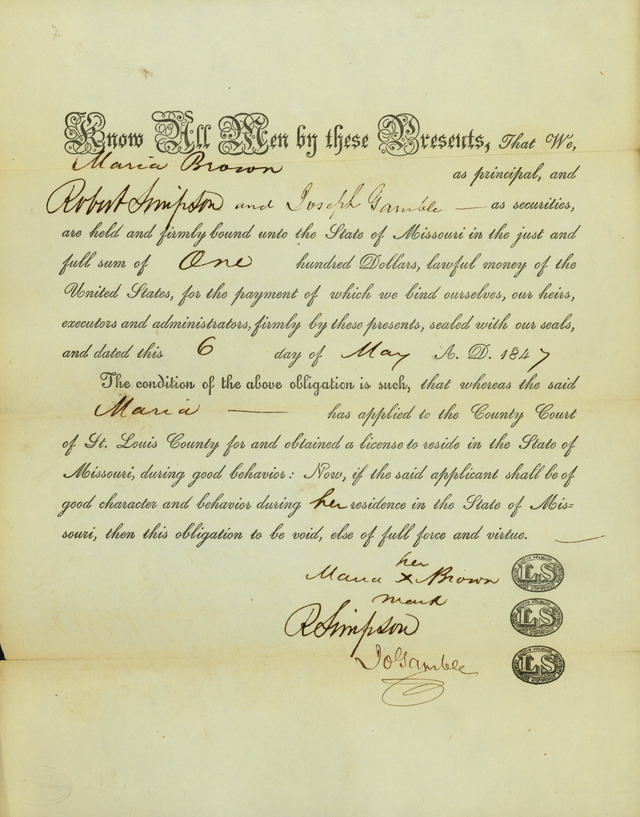 Know All Men by these Presents, That We,
Maria Brown as principal, and
Robert Simpson and Joseph Gamble — as securities,
are held and firmly bound unto the State of Missouri in the just and
full sum of One hundred Dollars, lawful money of the
United States, for the payment of which we bind ourselves, our heirs,
executors and administrators, firmly by these presents, sealed with our seals,
and dated this 6 day of May A. D. 1847
The condition of the above obligation is such, that whereas the said
Maria — has applied to the County Court
of St. Louis County for and obtained a license to reside in the State of
Missouri, during good behavior: Now, if the said applicant shall be of
good character and behavior during her residence in the State of Mis=
souri, then this obligation to be void, else of full force and virtue. —
her
Maria X Brown LS
mark
R Simpson LS
Jo Gamble LS